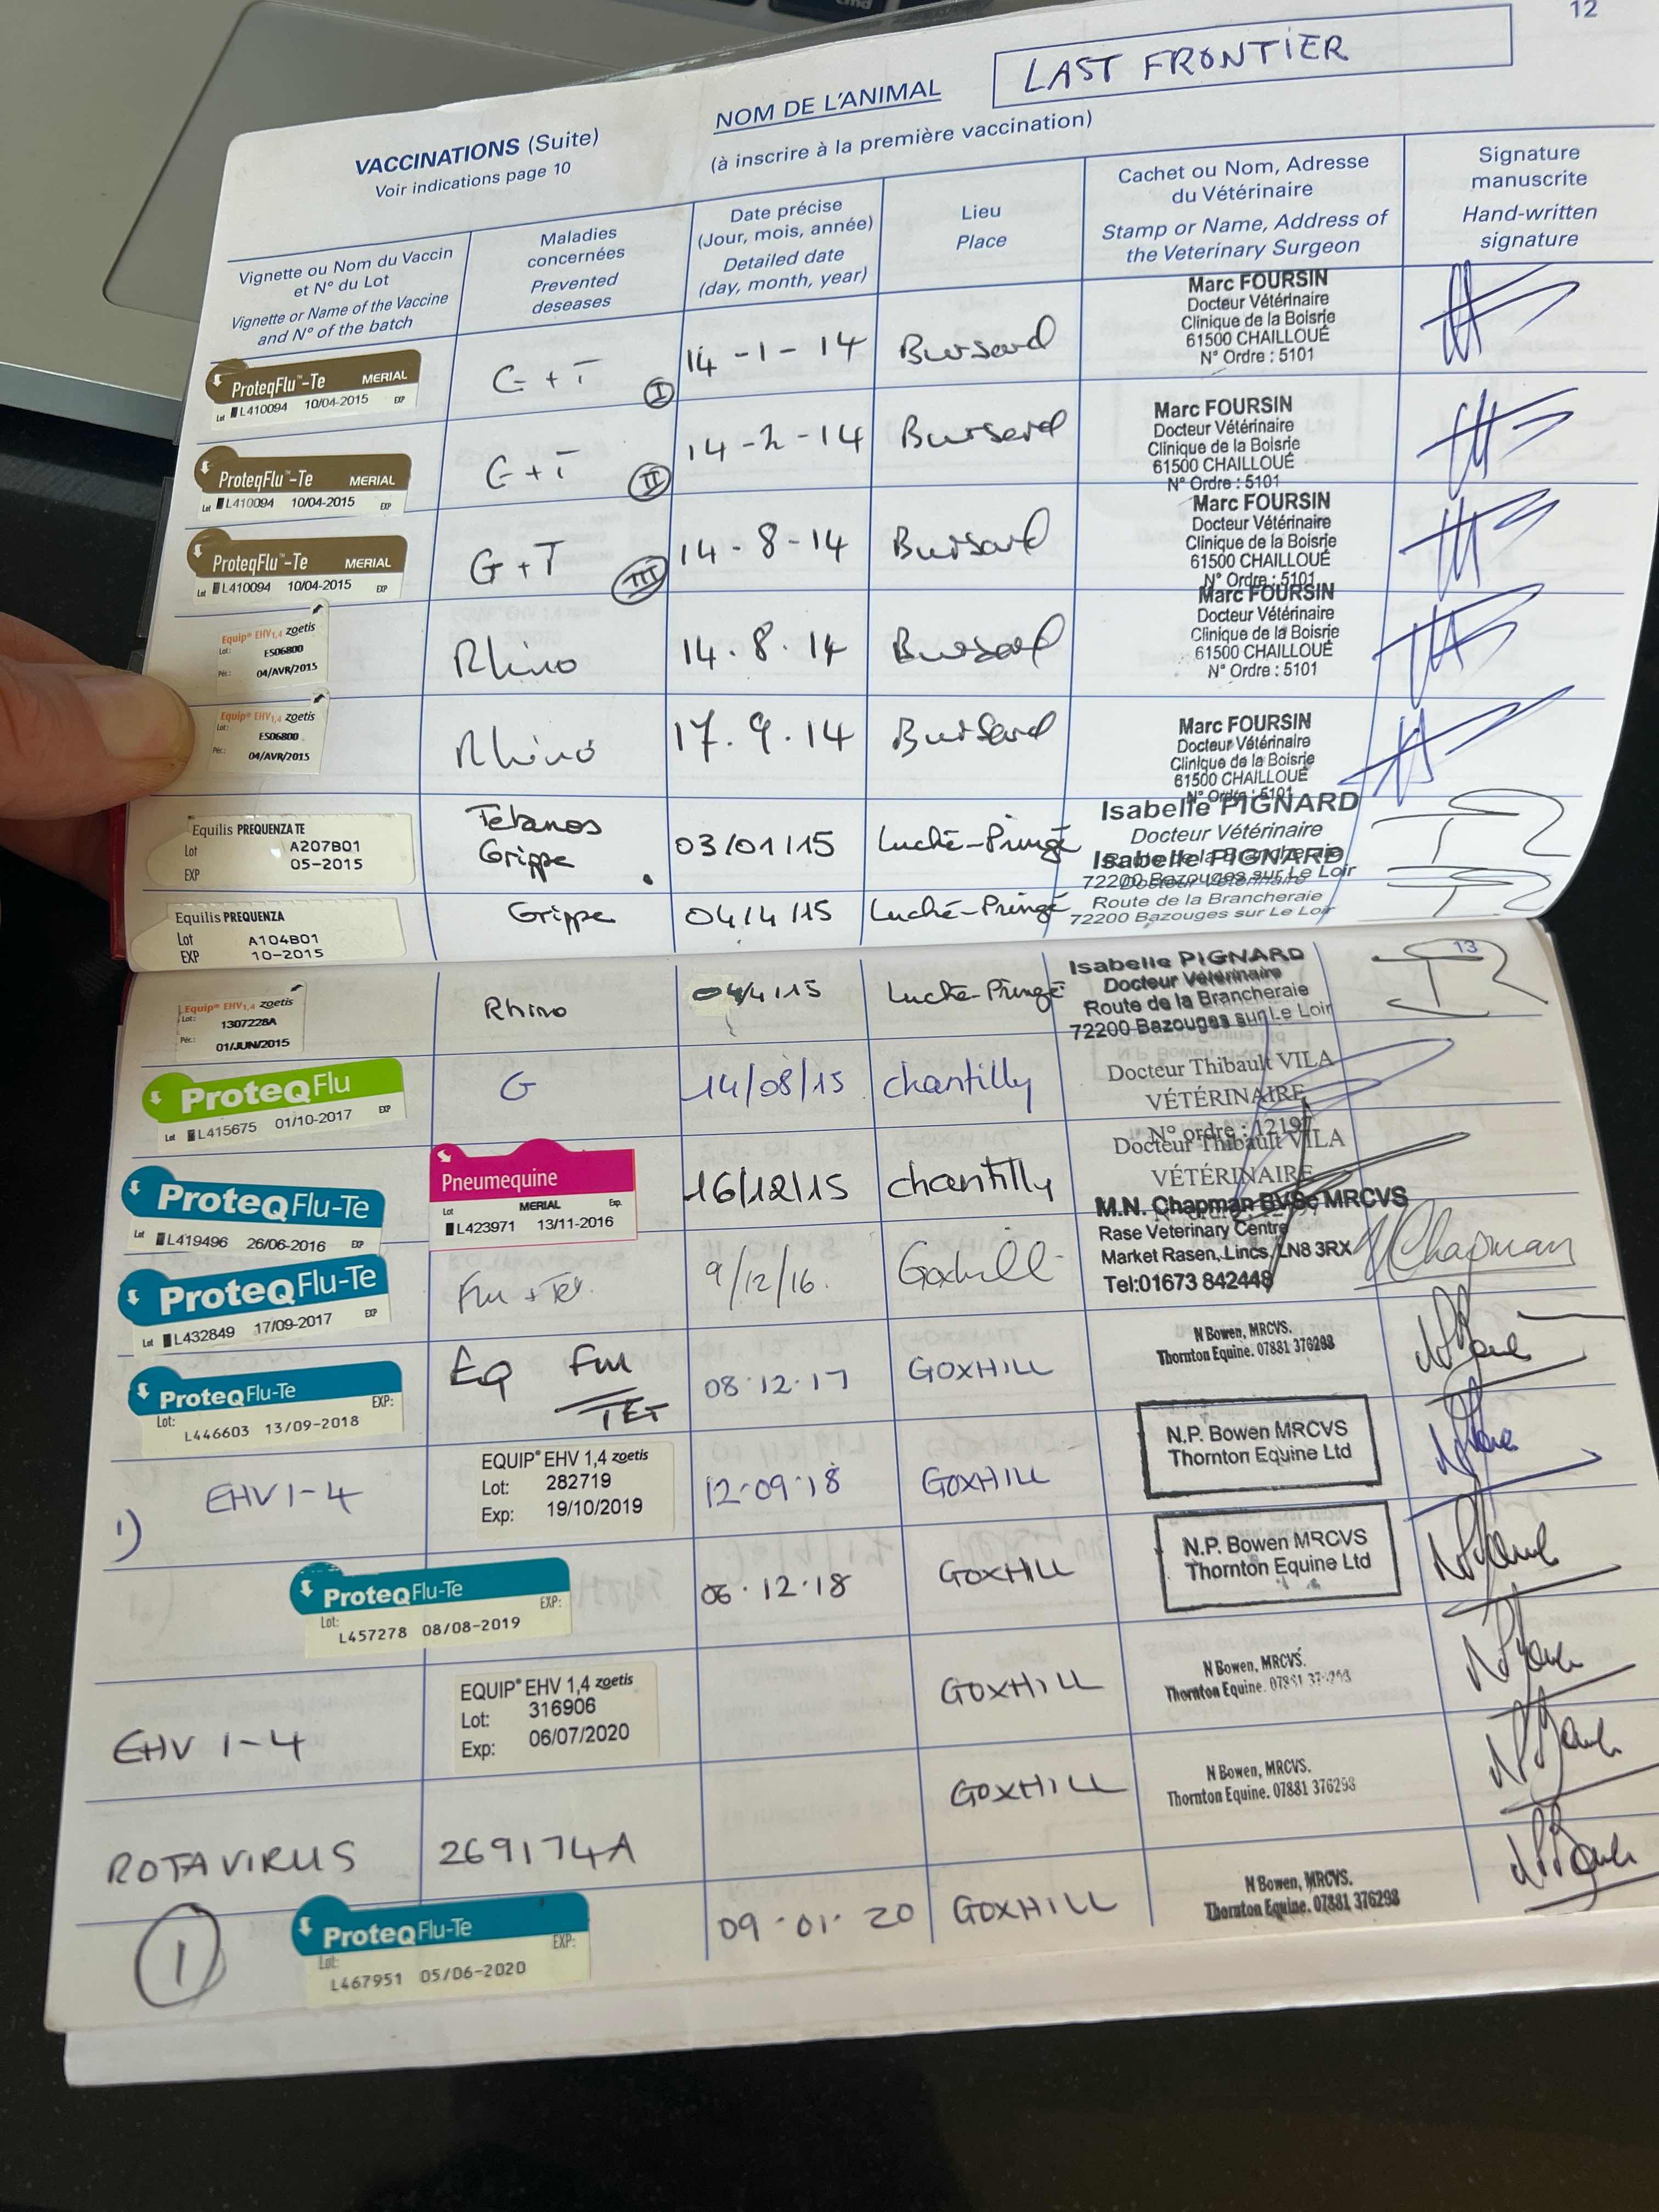 12
LAST FRONTIER
NOM DE L'ANIMAL
(à inscrire à la première vaccination)
VACCINATIONS (Suite)
Voir indications page 10
Vignette ou Nom du Vaccin
et N° du Lot
Vignette or Name of the Vaccine
and N° of the batch
Maladies
concernées
Prevented
deseases
Date précise
(Jour, mois, année)
Detailed date
(day, month, year)
Lieu
Place
Cachet ou Nom, Adresse
du Vétérinaire
Stamp or Name, Address of
the Veterinary Surgeon
Signature
manuscrite
Hand-written
signature
ProteqFlu™-Te MERIAL
Lot L410094 10/04-2015 EXP
G + T I
14-1-14
Bursard
Marc FOURSIN
Docteur Vétérinaire
Clinique de la Boisrie
61500 CHAILLOUÉ
N° Ordre : 5101
ProteqFlu™-Te MERIAL
Lot L410094 10/04-2015 EXP
G + T II
14-2-14
Bursard
Marc FOURSIN
Docteur Vétérinaire
Clinique de la Boisrie
61500 CHAILLOUÉ
N° Ordre : 5101
ProteqFlu™-Te MERIAL
Lot L410094 10/04-2015 EXP
G + T III
14-8-14
Bursard
Marc FOURSIN
Docteur Vétérinaire
Clinique de la Boisrie
61500 CHAILLOUÉ
N° Ordre : 5101
Equip® EHV1,4 zoetis
Lot: ES06800
Pér.: 04/AVR/2015
Rhino
14.8.14
Bursard
Marc FOURSIN
Docteur Vétérinaire
Clinique de la Boisrie
61500 CHAILLOUÉ
N° Ordre : 5101
Equip® EHV1,4 zoetis
Lot: ES06800
Pér.: 04/AVR/2015
Rhino
17.9.14
Bursard
Marc FOURSIN
Docteur Vétérinaire
Clinique de la Boisrie
61500 CHAILLOUÉ
N° Ordre : 5101
Equilis PREQUENZA TE
Lot A207B01
EXP 05-2015
Tetanos
Grippe
03/01/15
Luché-Pringé
Isabelle PIGNARD
Docteur Vétérinaire
Route de la Brancheraie
72200 Bazouges sur Le Loir
Equilis PREQUENZA
Lot A104B01
EXP 10-2015
Grippe
04/4/15
Luché-Pringé
Isabelle PIGNARD
Docteur Vétérinaire
Route de la Brancheraie
72200 Bazouges sur Le Loir
13
Equip® EHV1,4 zoetis
Lot: 1307228A
Pér.: 01/JUN/2015
Rhino
04/4/15
Luché-Pringé
Isabelle PIGNARD
Docteur Vétérinaire
Route de la Brancheraie
72200 Bazouges sur Le Loir
ProteqFlu
Lot L415675 01/10-2017 EXP
G
14/08/15
chantilly
Docteur Thibault VILA
VÉTÉRINAIRE
N° ordre : 12197
ProteqFlu-Te
Lot L419496 26/06-2016 EXP
Pneumequine
Lot MERIAL Exp.
L423971 13/11-2016
16/12/15
chantilly
Docteur Thibault VILA
VÉTÉRINAIRE
ProteqFlu-Te
Lot L432849 17/09-2017 EXP
Flu + Tet.
9/12/16.
Goxhill
M.N. Chapman BVSc MRCVS
Rase Veterinary Centre
Market Rasen, Lincs, LN8 3RX
Tel:01673 842448
Chapman
ProteqFlu-Te
Lot: EXP:
L446603 13/09-2018
Eq Flu
TET
08.12.17
GOXHILL
N Bowen, MRCVS.
Thornton Equine. 07881 376298
1) EHV 1-4
EQUIP® EHV 1,4 zoetis
Lot: 282719
Exp: 19/10/2019
12.09.18
GOXHILL
N.P. Bowen MRCVS
Thornton Equine Ltd
ProteqFlu-Te
Lot: EXP:
L457278 08/08-2019
06.12.18
GOXHILL
N.P. Bowen MRCVS
Thornton Equine Ltd
EHV 1-4
EQUIP® EHV 1,4 zoetis
Lot: 316906
Exp: 06/07/2020
GOXHILL
N Bowen, MRCVS.
Thornton Equine.
ROTAVIRUS
269174A
GOXHILL
N Bowen, MRCVS.
Thornton Equine. 07881 376298
1
ProteqFlu-Te
Lot: EXP:
L467951 05/06-2020
09.01.20
GOXHILL
N Bowen, MRCVS.
Thornton Equine. 07881 376298